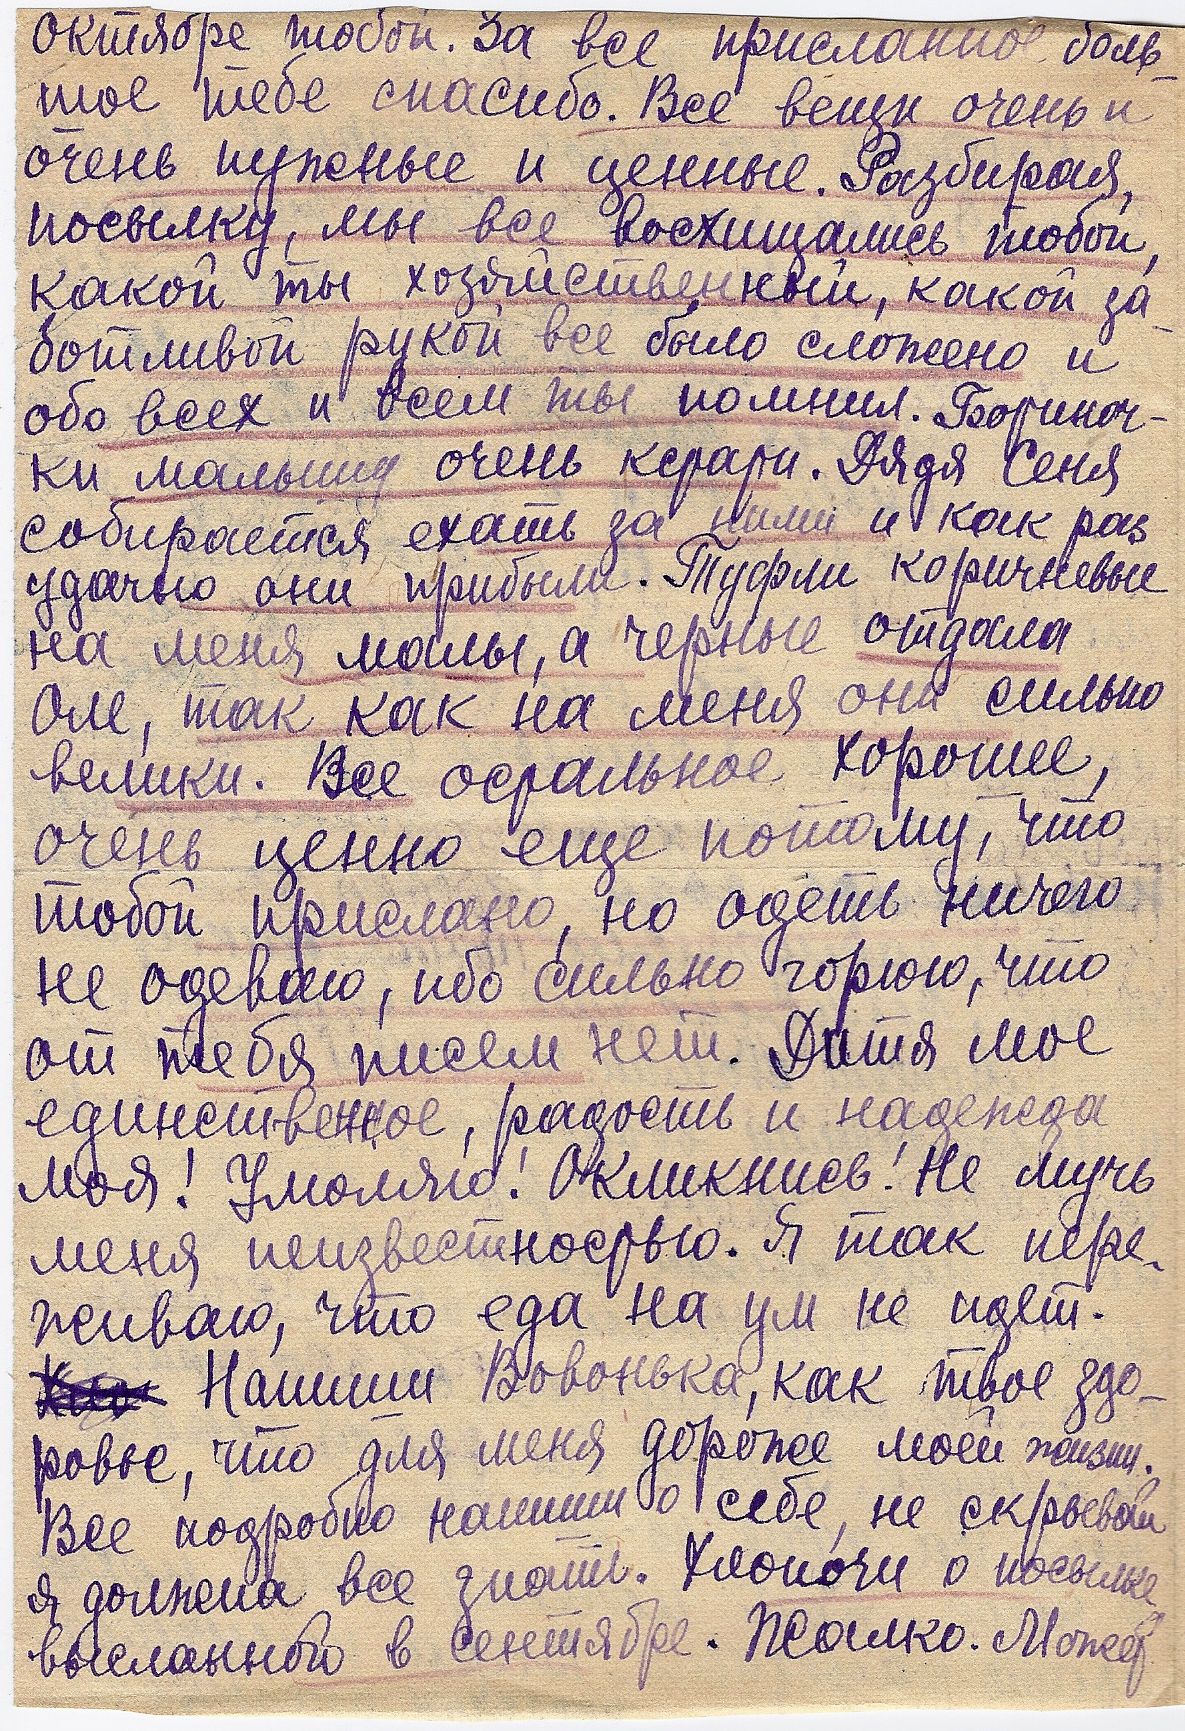 октябре тобой. За все присланное боль-
шое тебе спасибо. Все вещи очень и
очень нужные и ценные. Разбирая,
посылку, мы все восхищались тобой,
какой ты хозяйственный, какой за-
ботливой рукой все было сложено и
обо всех и всем ты помнил. Ботиноч-
ки малышу очень кстати. Дядя Сеня
собирается ехать за ними и как раз
удачно они прибыли. Туфли коричневые
на меня малы, а черные отдала
Оле, так как на меня они сильно
велики. Все остальное хорошее,
очень ценно еще потому, что
тобой прислано, но одеть ничего
не одеваю, ибо сильно горюю, что
от тебя писем нет. Дитя мое
единственное, радость и надежда
моя! Умоляю! Окликнись! Не мучь
меня неизвестностью. Я так пере-
живаю, что еда на ум не идет.
Напиши Вовонька, как твое здо-
ровье, что для меня дороже моей жизни.
Все подробно напиши о себе, не скрывай
я должна все знать. Хлопочи о посылке
высланной в сентябре. Жалко. Может